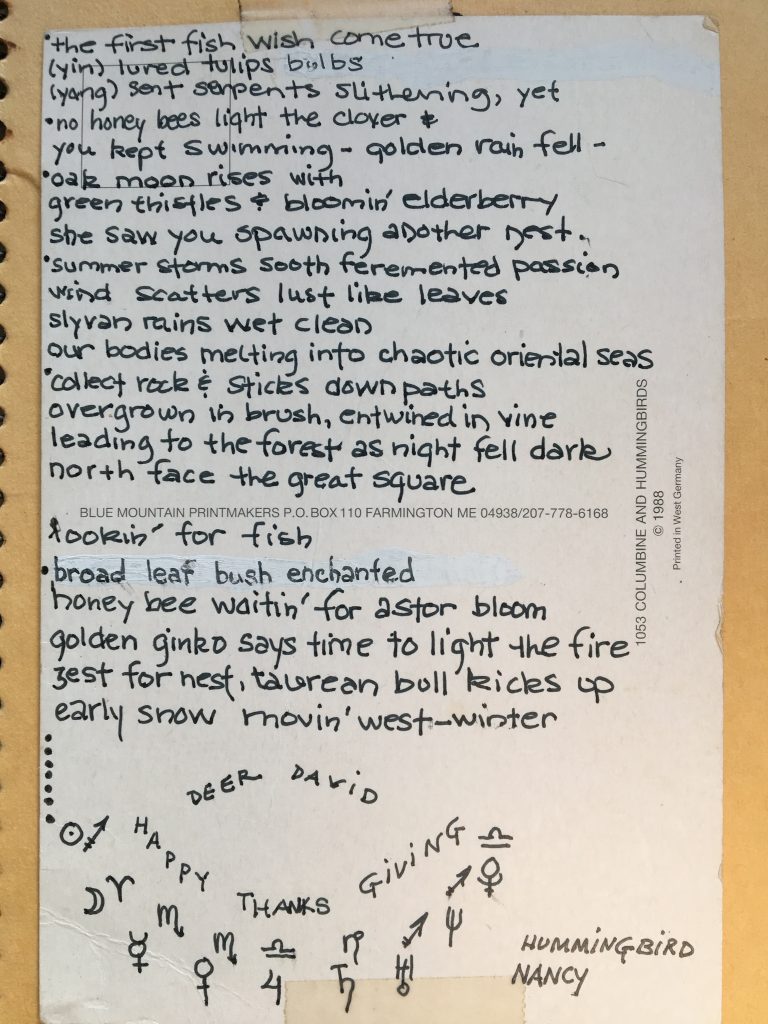 •the first fish wish come true
(yin) lured tulips bulbs
(yang) sent serpents slithering, yet
•no honey bees light the clover &
you kept swimming - golden rain fell -
•oak moon rises with
green thistles & bloomin' elderberry
she saw you spawning another nest.
•summer storms sooth feremented passion
wind scatters lust like leaves
slyvan rains wet clean
our bodies melting into chaotic oriental seas
•collect rock & sticks down paths
overgrown in brush, entwined in vine
leading to the forest as night fell dark
north face the great square
BLUE MOUNTAIN PRINTMAKERS P.O. BOX 110 FARMINGTON ME 04938/207-778-6168
lookin' for fish
•broad leaf bush enchanted
honey bee waitin' for astor bloom
golden ginko says time to light the fire
zest for nest, taurean bull kicks up
early snow movin' west-winter
DEER DAVID
HAPPY
THANKS
GIVING
☉♐
☽♈
☿♏
♀♏
♃♎
♄♑
♅♐
♆♐
♇♎
HUMMINGBIRD
NANCY
1053 COLUMBINE AND HUMMINGBIRDS
© 1988
Printed in West Germany